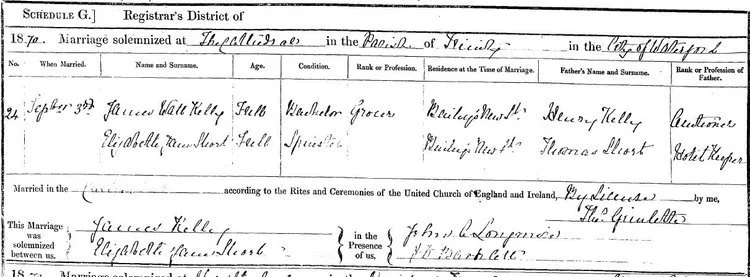 SCHEDULE G.] Registrar's District of
1870. Marriage solemnized at The Cathedral in the Parish of Trinity in the City of Waterford
No. When Married. Name and Surname. Age. Condition. Rank or Profession. Residence at the Time of Marriage. Father's Name and Surname. Rank or Profession of Father.
24 Septber 3rd James Wall Kelly Full Bachelor Grocer Baileys New St. Henry Kelly
Elizabeth Jane Short Full Spinster Baileys New St. Thomas Short Hotel Keeper
Married in the according to the Rites and Ceremonies of the United Church of England and Ireland, By License by me,
Thos.
This Marriage was solemnized between us, James Kelly in the Presence of us, John C Longmire
Elizabeth Jane Short
187 . Marriage solemnized at in the of in the